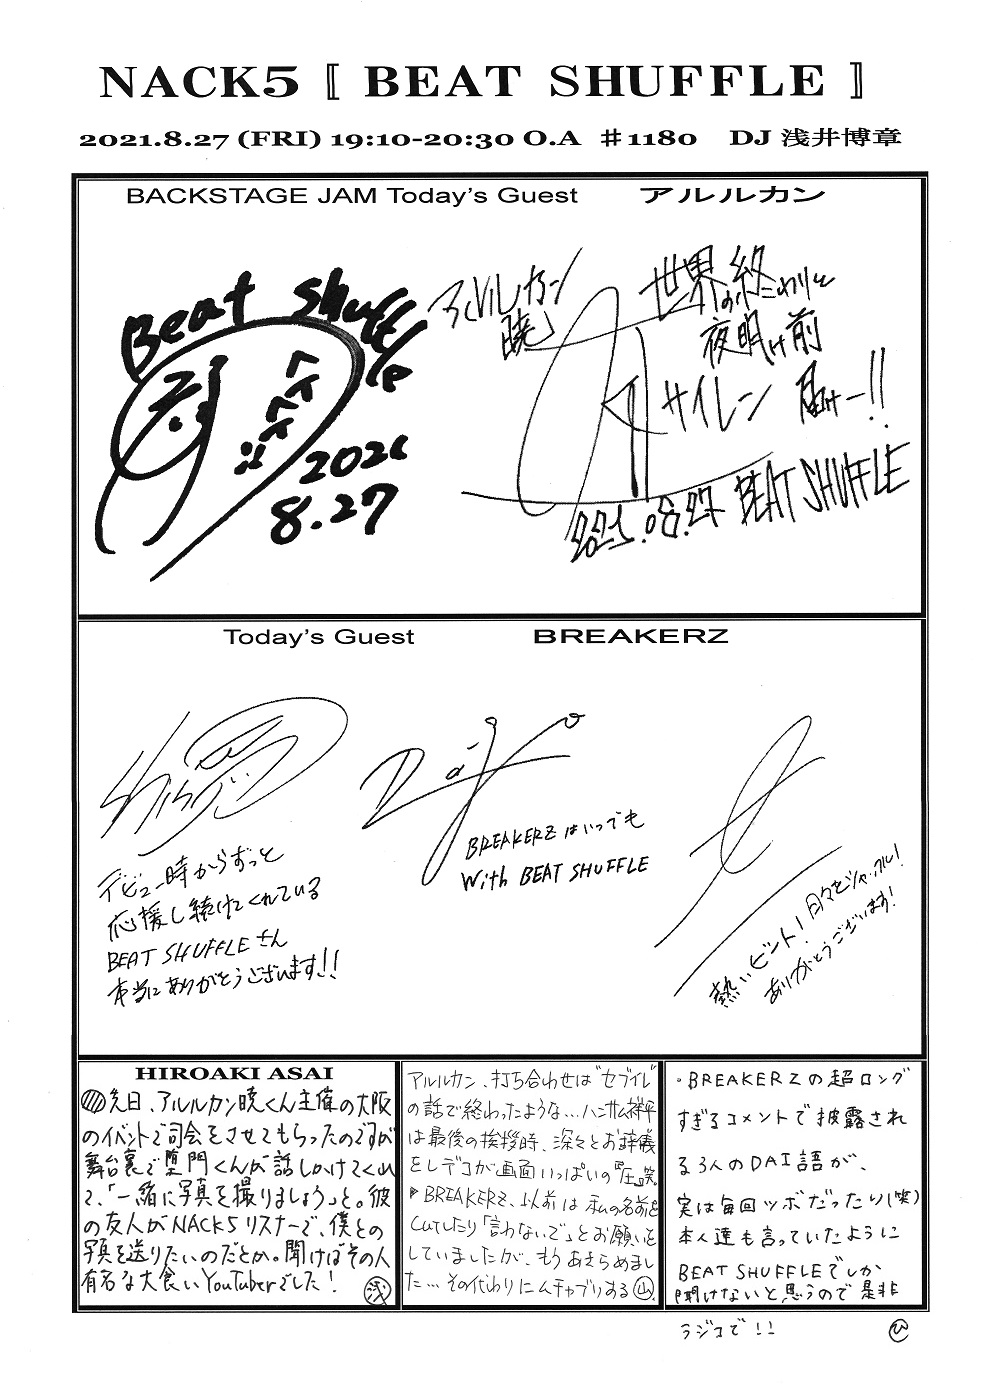 NACK5 〚 BEAT SHUFFLE 〛
2021.8.27 (FRI) 19:10-20:30 O.A ♯1180 DJ 浅井博章
BACKSTAGE JAM Today's Guest アルルカン
Beat shuffle
2021
8.27
アルルカン
暁
世界の終わりと
夜明け前
サイレン 届けー!!
2021.08.27 BEAT SHUFFLE
Today's Guest BREAKERZ
デビュー時からずっと
応援し続けてくれている
BEAT SHUFFLEさん
本当にありがとうございます!!
BREAKERZはいつでも
With BEAT SHUFFLE
熱いビート!日々をシャッフル!
ありがとうございます!
HIROAKI ASAI
先日、アルルカン暁くん主催の大阪
のイベントで司会をさせてもらったのですが
舞台裏で堕門くんが話しかけてくれ
て、「一緒に写真を撮りましょう」と。彼
の友人がNACK5リスナーで、僕との
写真を送りたいのだとか。聞けばその人
有名な大食いYouTuberでした! 浅
アルルカン、打ち合わせは"セブイレ"
の話で終わったような…ハンサム祥平
は最後の挨拶時、深々とお辞儀
をしデコが画面いっぱいの『圧』笑
▶BREAKERZ、以前は私の名前を
CUTしたり「言わないで」とお願いを
していましたが、もうあきらめまし
た…その代わりにムチャブリする 山
・BREAKERZの超ロング
すぎるコメントで披露され
る3人のDAI語が、
実は毎回ツボだったり(笑)
本人達も言っていたように
BEAT SHUFFLEでしか
聞けないと思うので是非
ラジコで!! ひ